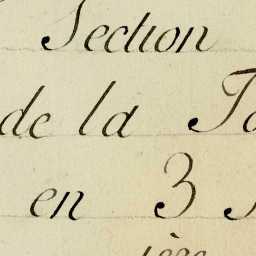 Section
de la
en 3